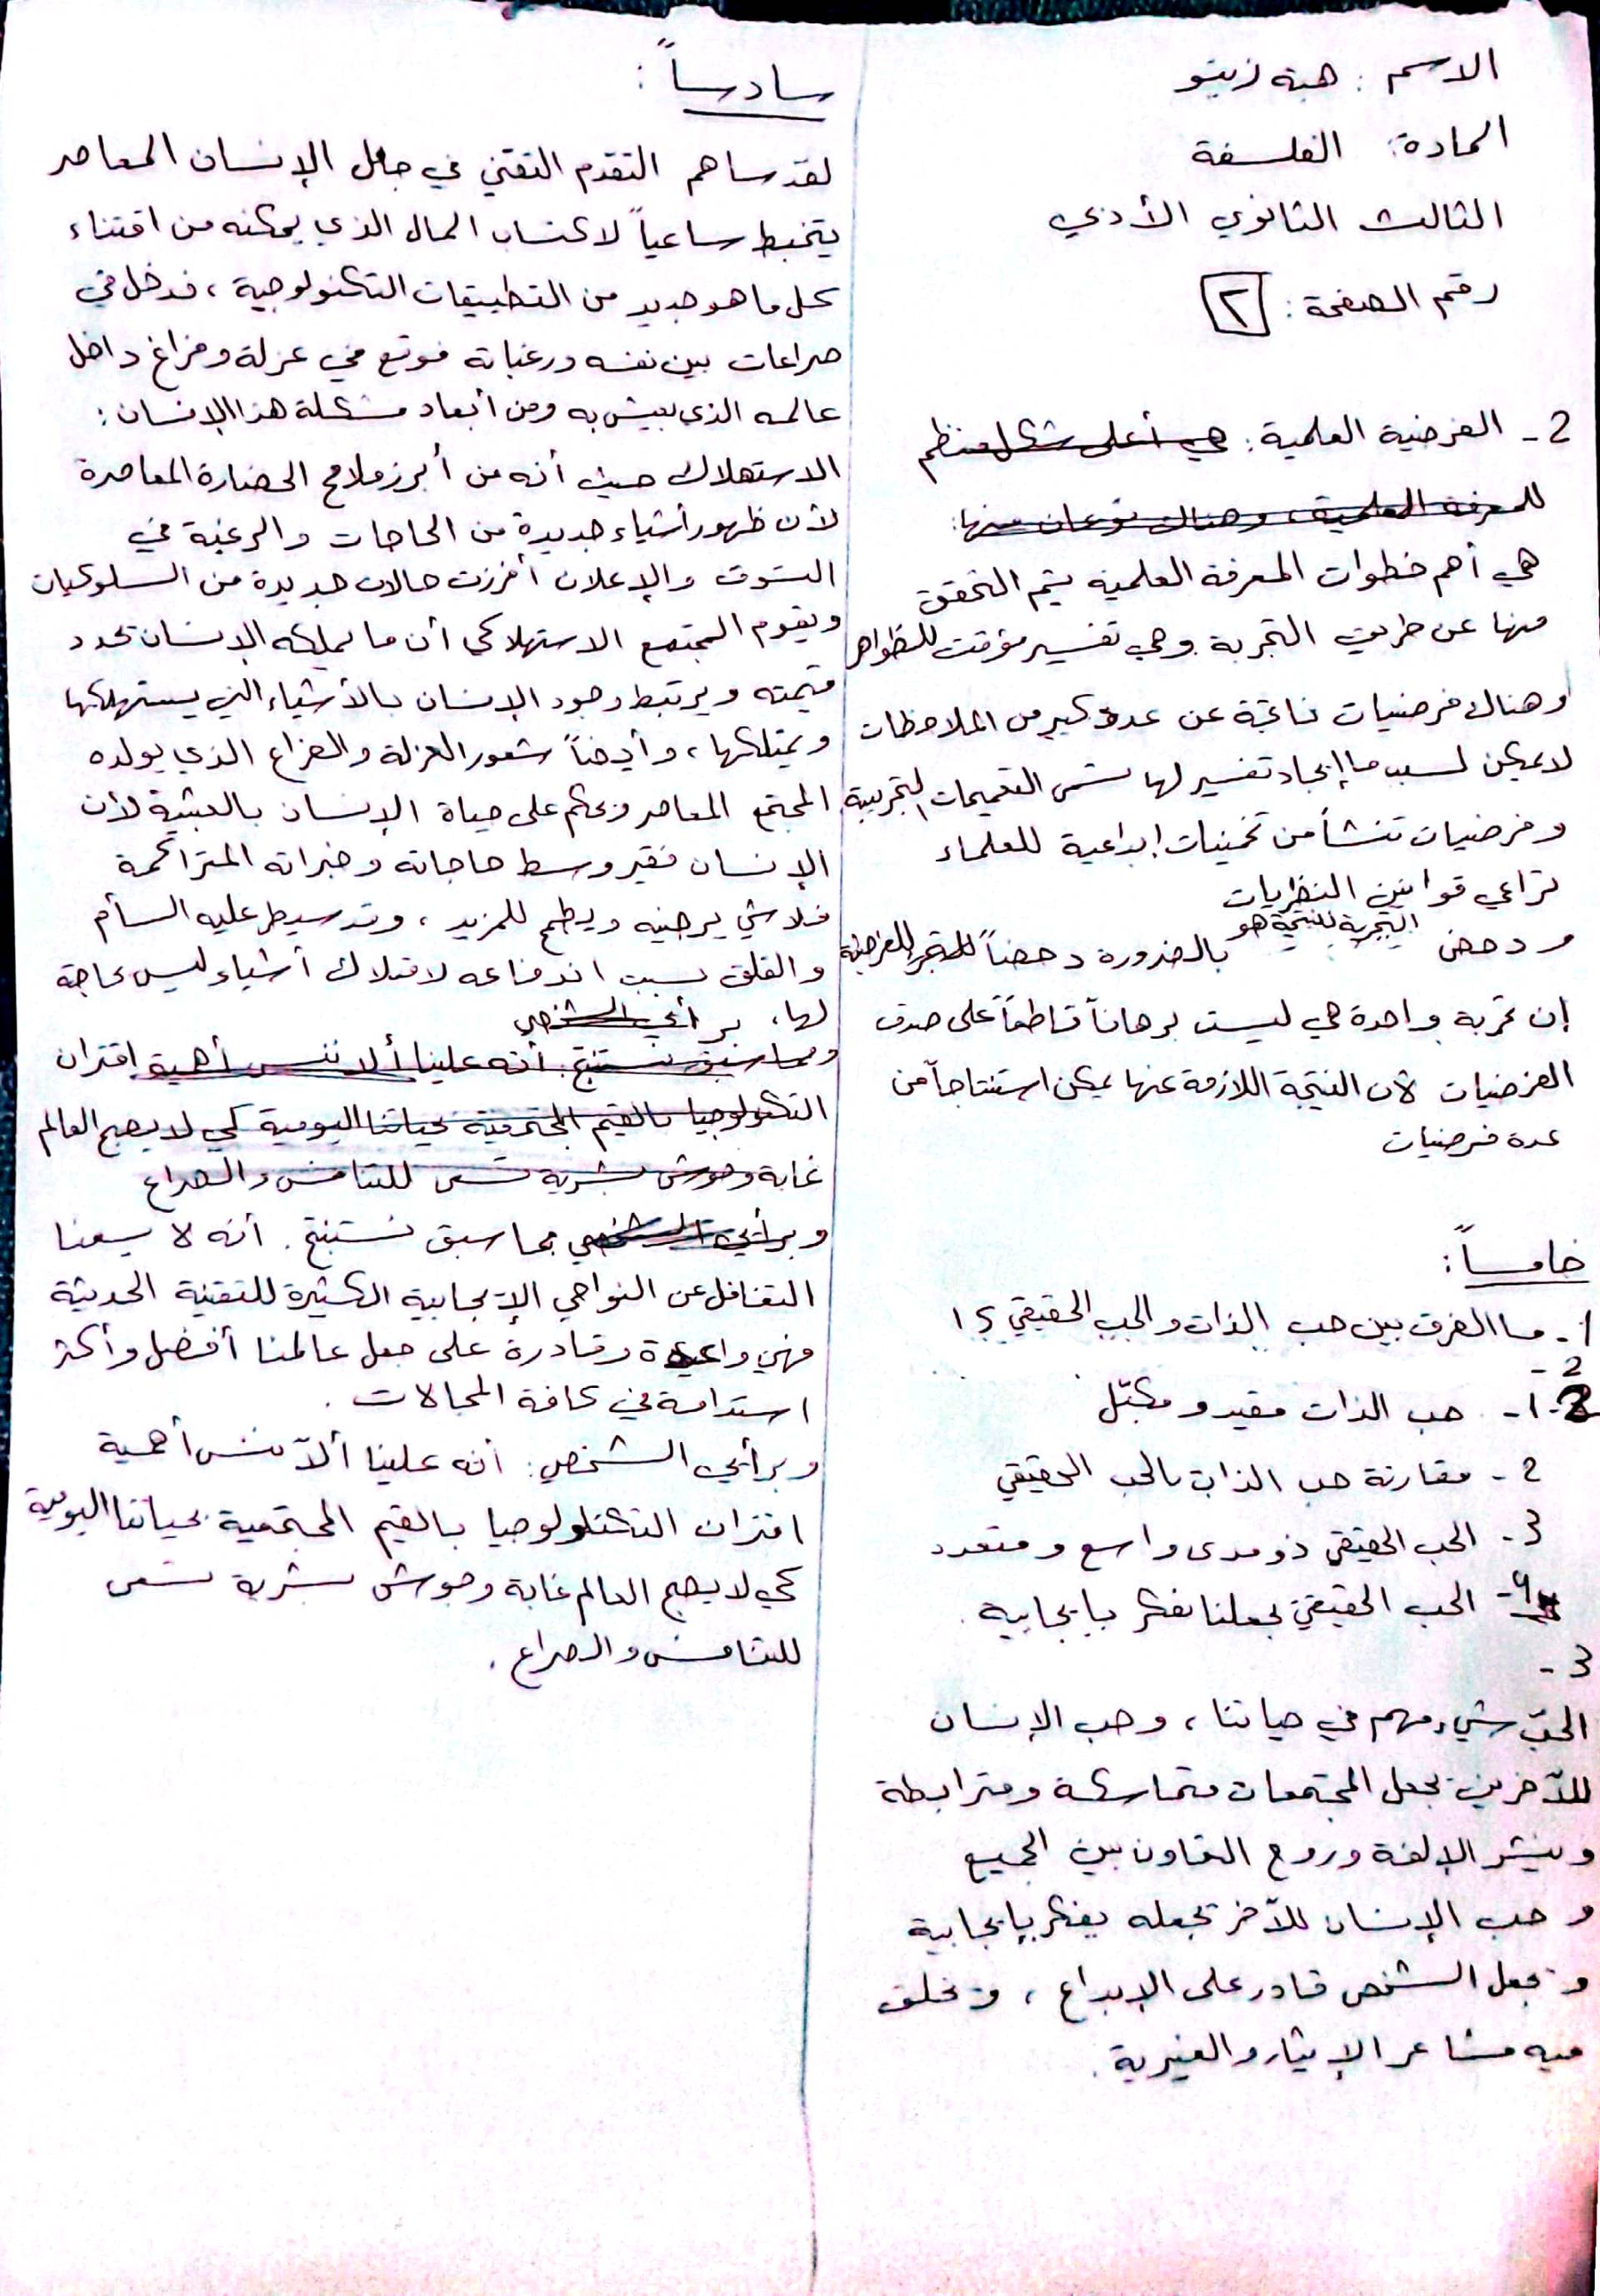 الاسم : هبة زينو
المادة: الفلسفة
الثالث الثانوي الأدبي
رقم الصفحة: ٢
2- الفرضية العلمية: هي أعلى شكل منظم
للمعرفة العلمية، وهناك نوعان منها:
هي أهم خطوات المعرفة العلمية يتم التحقق
منها عن طريق التجربة وهي تفسير مؤقت للظواهر
وهناك فرضيات ناتجة عن عدد كبير من الملاحظات
لا يمكن لسبب ما إيجاد تفسير لها تسمى التعميمات التجريبية
وفرضيات تنشأ من تخمينات إبداعية للعلماء
تراعي قوانين النظريات
ودحض التجربة للنتيجة هو بالضرورة دحضاً للفرضية
إن تجربة واحدة هي ليست برهاناً قاطعاً على صدق
الفرضيات لأن النتيجة اللازمة عنها يمكن استنتاجاً من
عدة فرضيات
خامساً:
1- ما الفرق بين حب الذات والحب الحقيقي؟
2-
1- حب الذات مقيد ومكبّل
2- مقارنة حب الذات بالحب الحقيقي
3- الحب الحقيقي ذو مدى واسع ومتعدد
4- الحب الحقيقي يجعلنا نفكر بإيجابية.
3-
الحبّ شيء مهم في حياتنا، وحب الإنسان
للآخرين يجعل المجتمعات متماسكة ومترابطة
وينشر الإلفة وروح التعاون بين الجميع
وحب الإنسان للآخر تجعله يفكر بإيجابية
وتجعل الشخص قادر على الإبداع، وتخلق
فيه مشاعر الإيثار والغيرية.
سادساً:
لقد ساهم التقدم التقني في جعل الإنسان المعاصر
يتخبط ساعياً لاكتساب المال الذي يمكنه من اقتناء
كل ما هو جديد من التطبيقات التكنولوجية، فدخل في
صراعات بين نفسه ورغباته فوقع في عزلة وفراغ داخل
عالمه الذي يعيش به ومن أبعاد مشكلة هذا الإنسان:
الاستهلاك حيث أنه من أبرز ملامح الحضارة المعاصرة
لأن ظهور أشياء جديدة من الحاجات والرغبة في
التسوق والإعلان أفرزت حالات جديدة من السلوكيات
ويقوم المجتمع الاستهلاكي أن ما يملكه الإنسان تحدد
قيمته ويرتبط وجود الإنسان بالأشياء التي يستهلكها
ويمتلكها، وأيضاً شعور العزلة والفراغ الذي يولده
المجتمع المعاصر وتحكم على حياة الإنسان بالعبثية لأن
الإنسان فقير وسط حاجاته وخبراته المتراكمة
فلا شيء يرضيه ويطمح للمزيد، وقد سيطر عليه السأم
والقلق بسبب اندفاعه لامتلاك أشياء ليس بحاجة
لها، برأي الشخصي
ومما سبق نستنتج: أنه علينا ألا ننسى أهمية اقتران
التكنولوجيا بالقيم المجتمعية بحياتنا اليومية كي لا يصبح العالم
غابة وحوش بشرية تسعى للتنافس والصراع
وبرأي الشخصي مما سبق نستنتج. أنه لا يسعنا
التغافل عن النواحي الإيجابية الكثيرة للتقنية الحديثة
فهي واعدة وقادرة على جعل عالمنا أفضل وأكثر
استدامة في كافة المجالات.
وبرأيي الشخصي: أنه علينا ألاّ ننسى أهمية
اقتران التكنولوجيا بالقيم المجتمعية بحياتنا اليومية
كي لا يصبح العالم غابة وحوش بشرية تسعى
للتنافس والصراع.